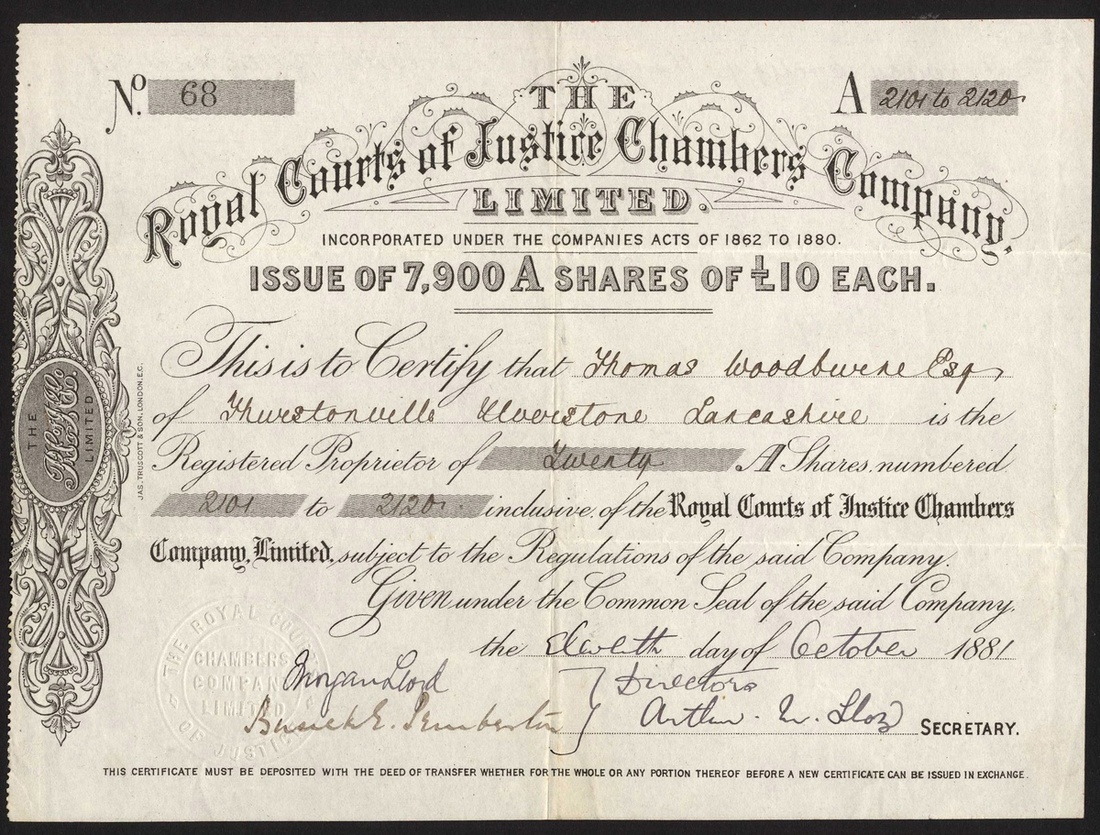 No. 68
A 2101 to 2120
THE
Royal Courts of Justice Chambers Company,
LIMITED.
INCORPORATED UNDER THE COMPANIES ACTS OF 1862 TO 1880.
ISSUE OF 7,900 A SHARES OF £10 EACH.
This is to Certify that Thomas Woodburne Esq
of Thurstonville Ulverstone Lancashire is the
Registered Proprietor of Twenty A Shares, numbered
2101 to 2120 inclusive, of the Royal Courts of Justice Chambers
Company, Limited, subject to the Regulations of the said Company.
Given under the Common Seal of the said Company,
the Eleventh day of October 1881
Morgan Lloyd
Directors
Pemberton
Arthur
SECRETARY.
THIS CERTIFICATE MUST BE DEPOSITED WITH THE DEED OF TRANSFER WHETHER FOR THE WHOLE OR ANY PORTION THEREOF BEFORE A NEW CERTIFICATE CAN BE ISSUED IN EXCHANGE.
THE
LIMITED
JAS. TRUSCOTT & SON, LONDON, E.C.
THE ROYAL COURTS OF JUSTICE
CHAMBERS
COMPANY
LIMITED